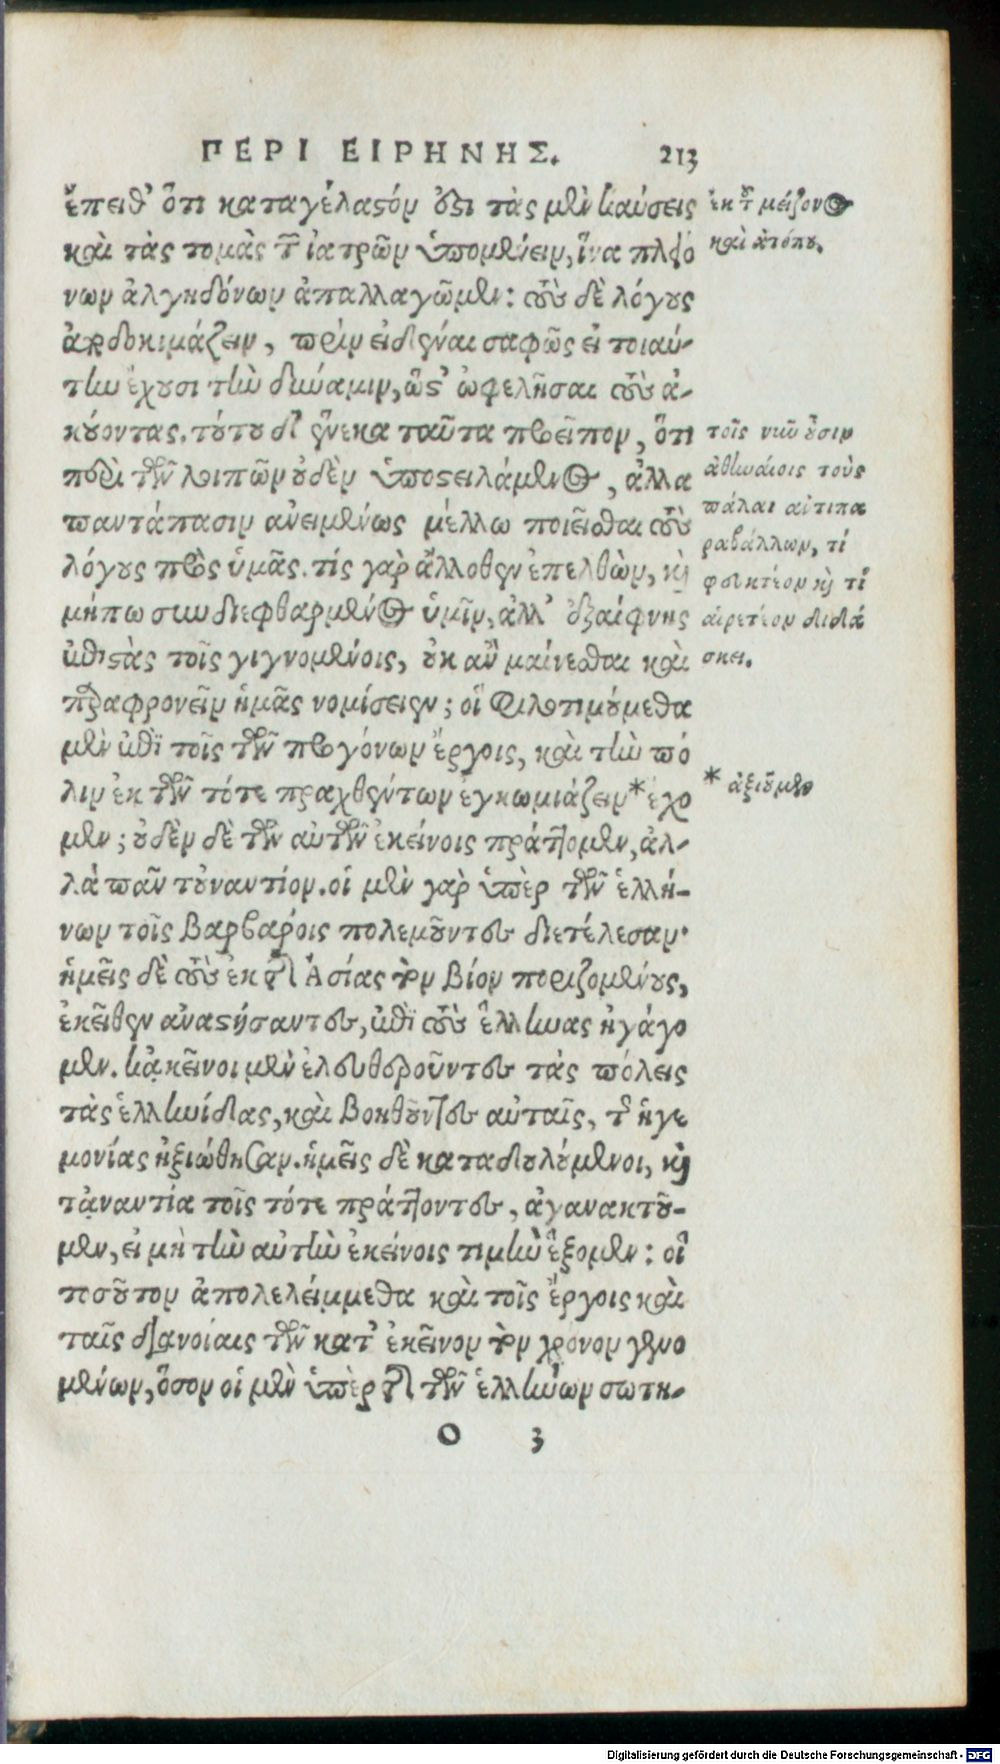 ΠΕΡΙ ΕΙΡΗΝΗΣ. 213
ἔπειθ' ὅτι καταγέλαστόν ἐστι τὰς μὲν καύσεις
καὶ τὰς τομὰς τῶν ἰατρῶν ὑπομένειν, ἵνα πλειό
νων ἀλγηδόνων ἀπαλλαγῶμεν: τοὺς δὲ λόγους
ἀποδοκιμάζειν, πρὶν εἰδέναι σαφῶς εἰ τοιαύ-
την ἔχουσι τὴν δύναμιν, ὥστ' ὠφελῆσαι τοὺς ἀ-
κούοντας. τούτου δ' ἕνεκα ταῦτα προεῖπον, ὅτι
περὶ τῶν λοιπῶν οὐδὲν ὑποστειλάμενος, ἀλλὰ
παντάπασιν ἀνειμένως μέλλω ποιεῖσθαι τοὺς
λόγους πρὸς ὑμᾶς. τίς γὰρ ἄλλοθεν ἐπελθὼν, καὶ
μήπω συνδιεφθαρμένος ὑμῖν, ἀλλ' ἐξαίφνης
ἐπιστὰς τοῖς γιγνομένοις, οὐκ ἂν μαίνεσθαι καὶ
παραφρονεῖν ἡμᾶς νομίσειεν; οἳ φιλοτιμούμεθα
μὲν ἐπὶ τοῖς τῶν προγόνων ἔργοις, καὶ τὴν πό
λιν ἐκ τῶν τότε πραχθέντων ἐγκωμιάζειν* ἔχο
μεν; οὐδὲν δὲ τῶν αὐτῶν ἐκείνοις πράττομεν, ἀλ-
λὰ πᾶν τοὐναντίον. οἱ μὲν γὰρ ὑπὲρ τῶν ἑλλή-
νων τοῖς βαρβάροις πολεμοῦντες διετέλεσαν·
ἡμεῖς δὲ τοὺς ἐκ τῆς Ἀσίας τὸν βίον ποριζομένους,
ἐκεῖθεν ἀναστήσαντες, ἐπὶ τοὺς ἕλληνας ἠγάγο
μεν. κἀκεῖνοι μὲν ἐλευθεροῦντες τὰς πόλεις
τὰς ἑλληνίδας, καὶ βοηθοῦντες αὐταῖς, τῆς ἡγε
μονίας ἠξιώθησαν. ἡμεῖς δὲ καταδουλούμενοι, καὶ
τἀναντία τοῖς τότε πράττοντες, ἀγανακτοῦ-
μεν, εἰ μὴ τὴν αὐτὴν ἐκείνοις τιμὴν ἕξομεν: οἳ
τοσοῦτον ἀπολελείμμεθα καὶ τοῖς ἔργοις καὶ
ταῖς διανοίαις τῶν κατ' ἐκεῖνον τὸν χρόνον γενο
μένων, ὅσον οἱ μὲν ὑπὲρ τῆς τῶν ἑλλήνων σωτη-
O 3
ἐκ τοῦ μείζονος
καὶ ἀτόπου.
τοῖς νῦν οὖσιν
ἀθηναίοις τοὺς
πάλαι ἀντιπα
ραβάλλων, τί
φευκτέον καὶ τί
αἱρετέον διδά
σκει.
* ἀξιοῦμεν